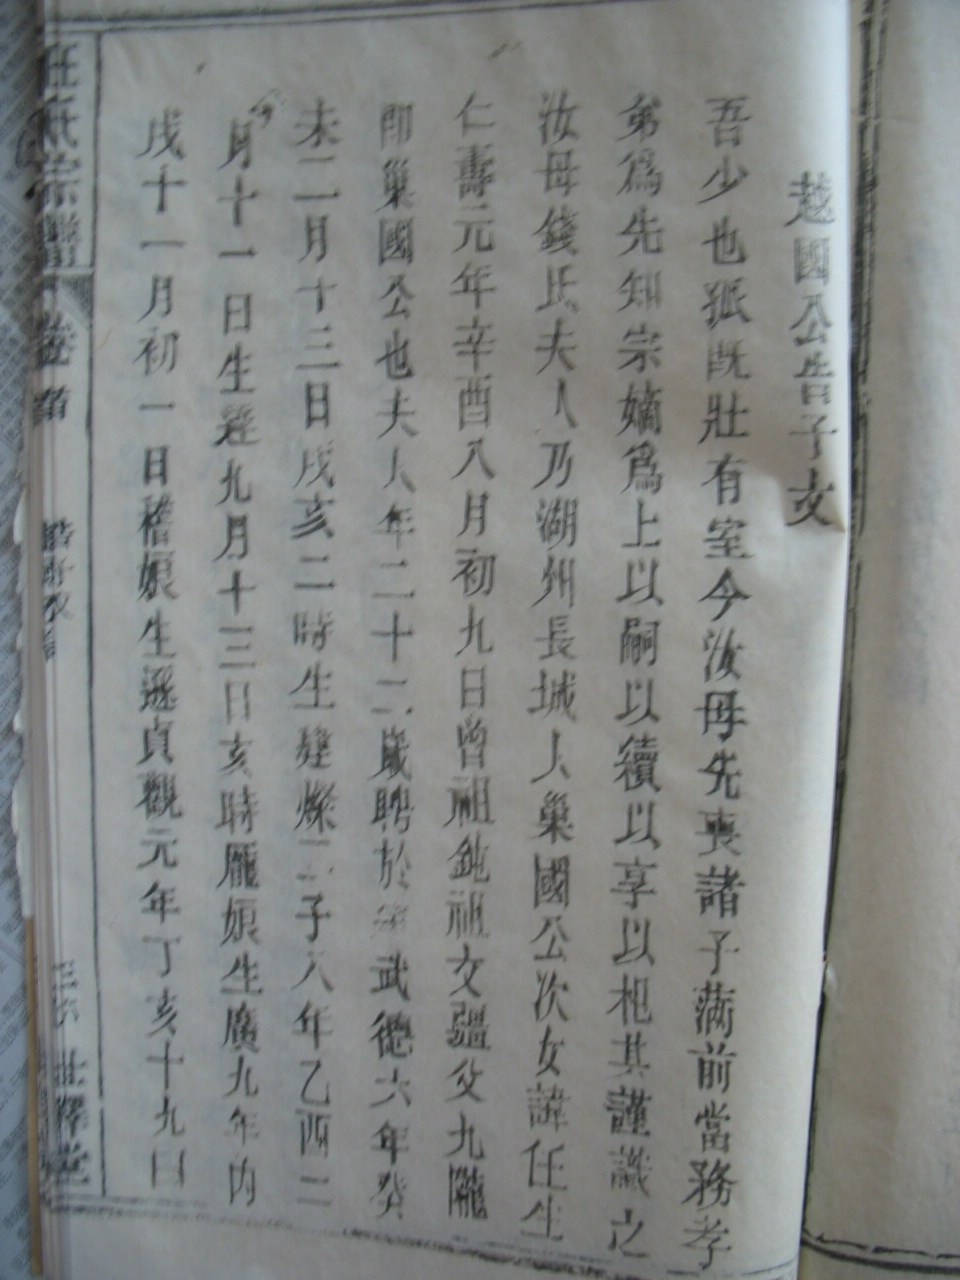 越國公告子文
吾少也孤既壯有室今汝母先喪諸子滿前當務孝
弟為先知宗嫡為上以嗣以續以享以祀其謹識之
汝母錢氏夫人乃湖州長城人巢國公次女諱任生
仁壽元年辛酉八月初九日曾祖鈍祖文疆父九隴
即巢國公也夫人年二十二歲聘於 武德六年癸
未二月十三日戌亥二時生建燦二子八年乙酉二
月十一日生達九月十三日亥時龎娘生廣九年丙
戌十一月初一日嵇娘生遜貞觀元年丁亥十九日
汪氏宗譜 卷首 誥子文